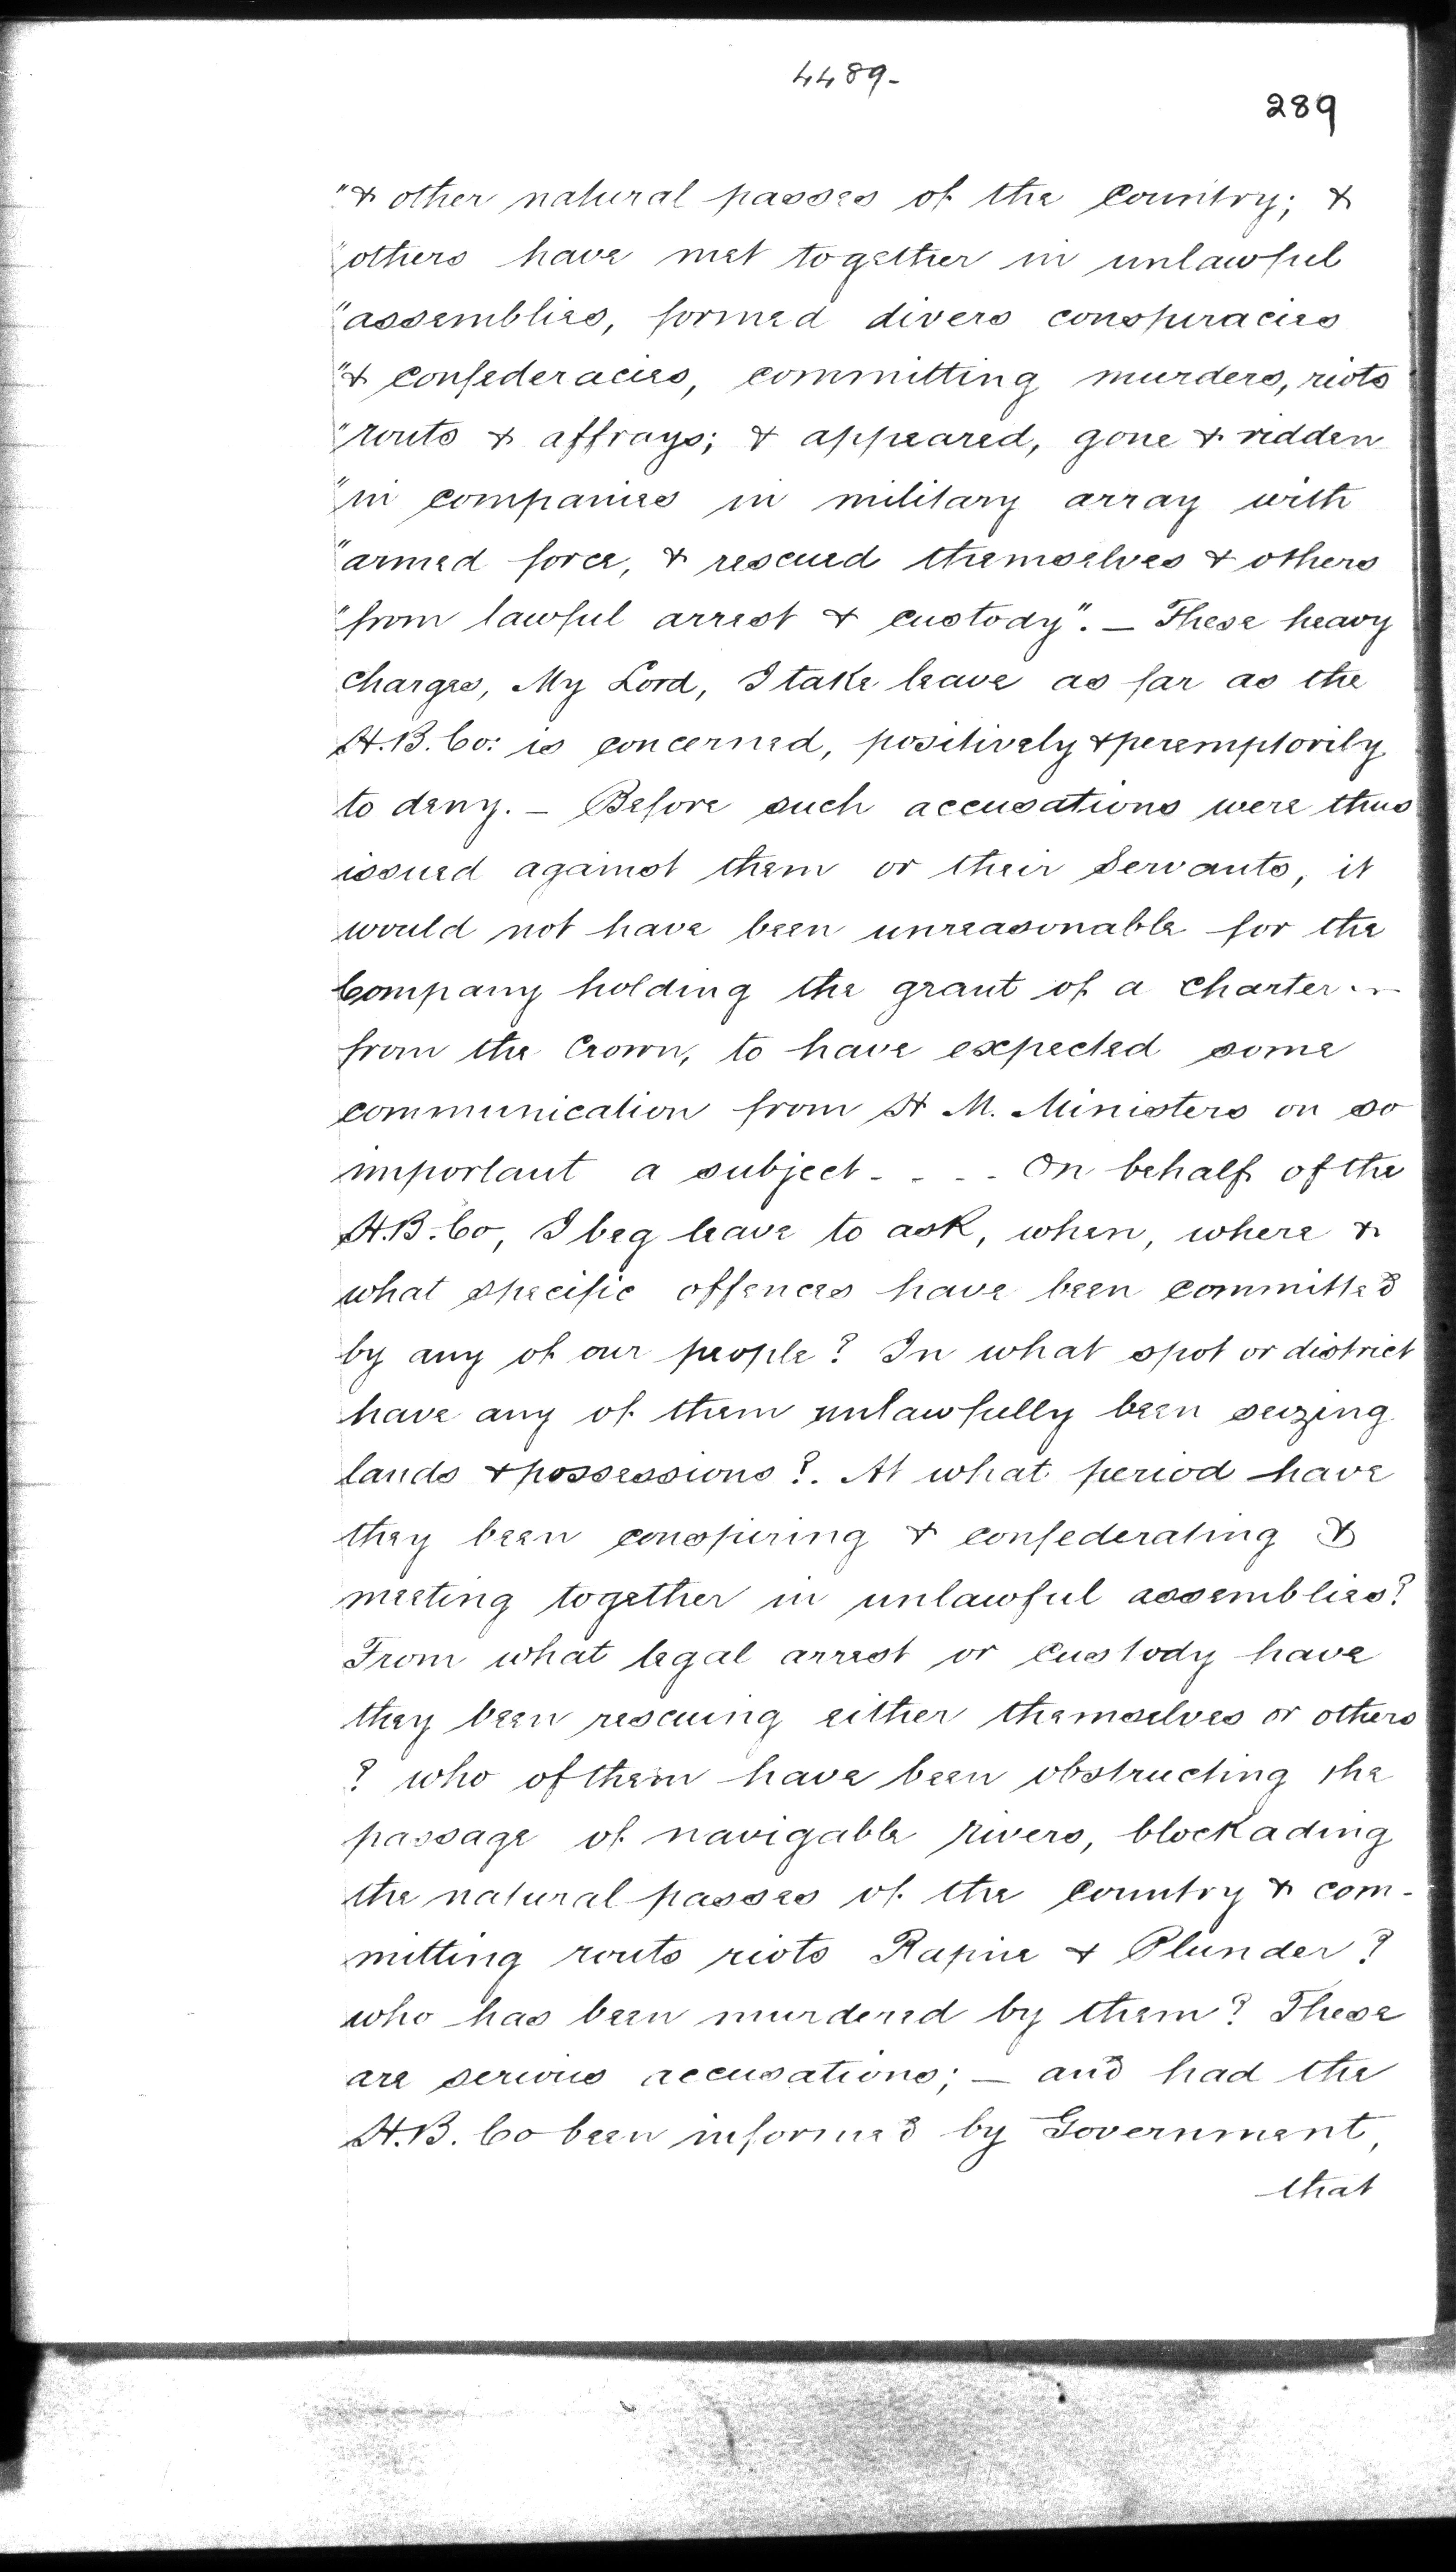 4489-
289
"& other natural passes of the Country; &
"others have met together in unlawful
"assemblies, formed divers conspiracies
"& confederacies, committing murders, riots
"routs & affrays; & appeared, gone & ridden
"in companies in military array with
"armed force, & rescued themselves & others
"from lawful arrest & custody". — These heavy
charges, My Lord, I take leave as far as the
H.B.Co: is concerned, positively & peremptorily
to deny. — Before such accusations were thus
issued against them or their Servants, it
would not have been unreasonable for the
Company holding the grant of a Charter
from the Crown, to have expected some
communication from H M. Ministers on so
important a subject - . . - On behalf of the
H.B.Co, I beg leave to ask, when, where &
what specific offences have been committed
by any of our people? In what spot or district
have any of them unlawfully been seizing
lands & possessions?. At what period have
they been conspiring & confederating &
meeting together in unlawful assemblies?
From what legal arrest or custody have
they been rescuing either themselves or others
? who of them have been obstructing the
passage of navigable rivers, blockading
the natural passes of the Country & com-
mitting routs riots Rapine & Plunder?
who has been murdered by them? These
are serious accusations; — and had the
H.B. Co been informed by Government,
that